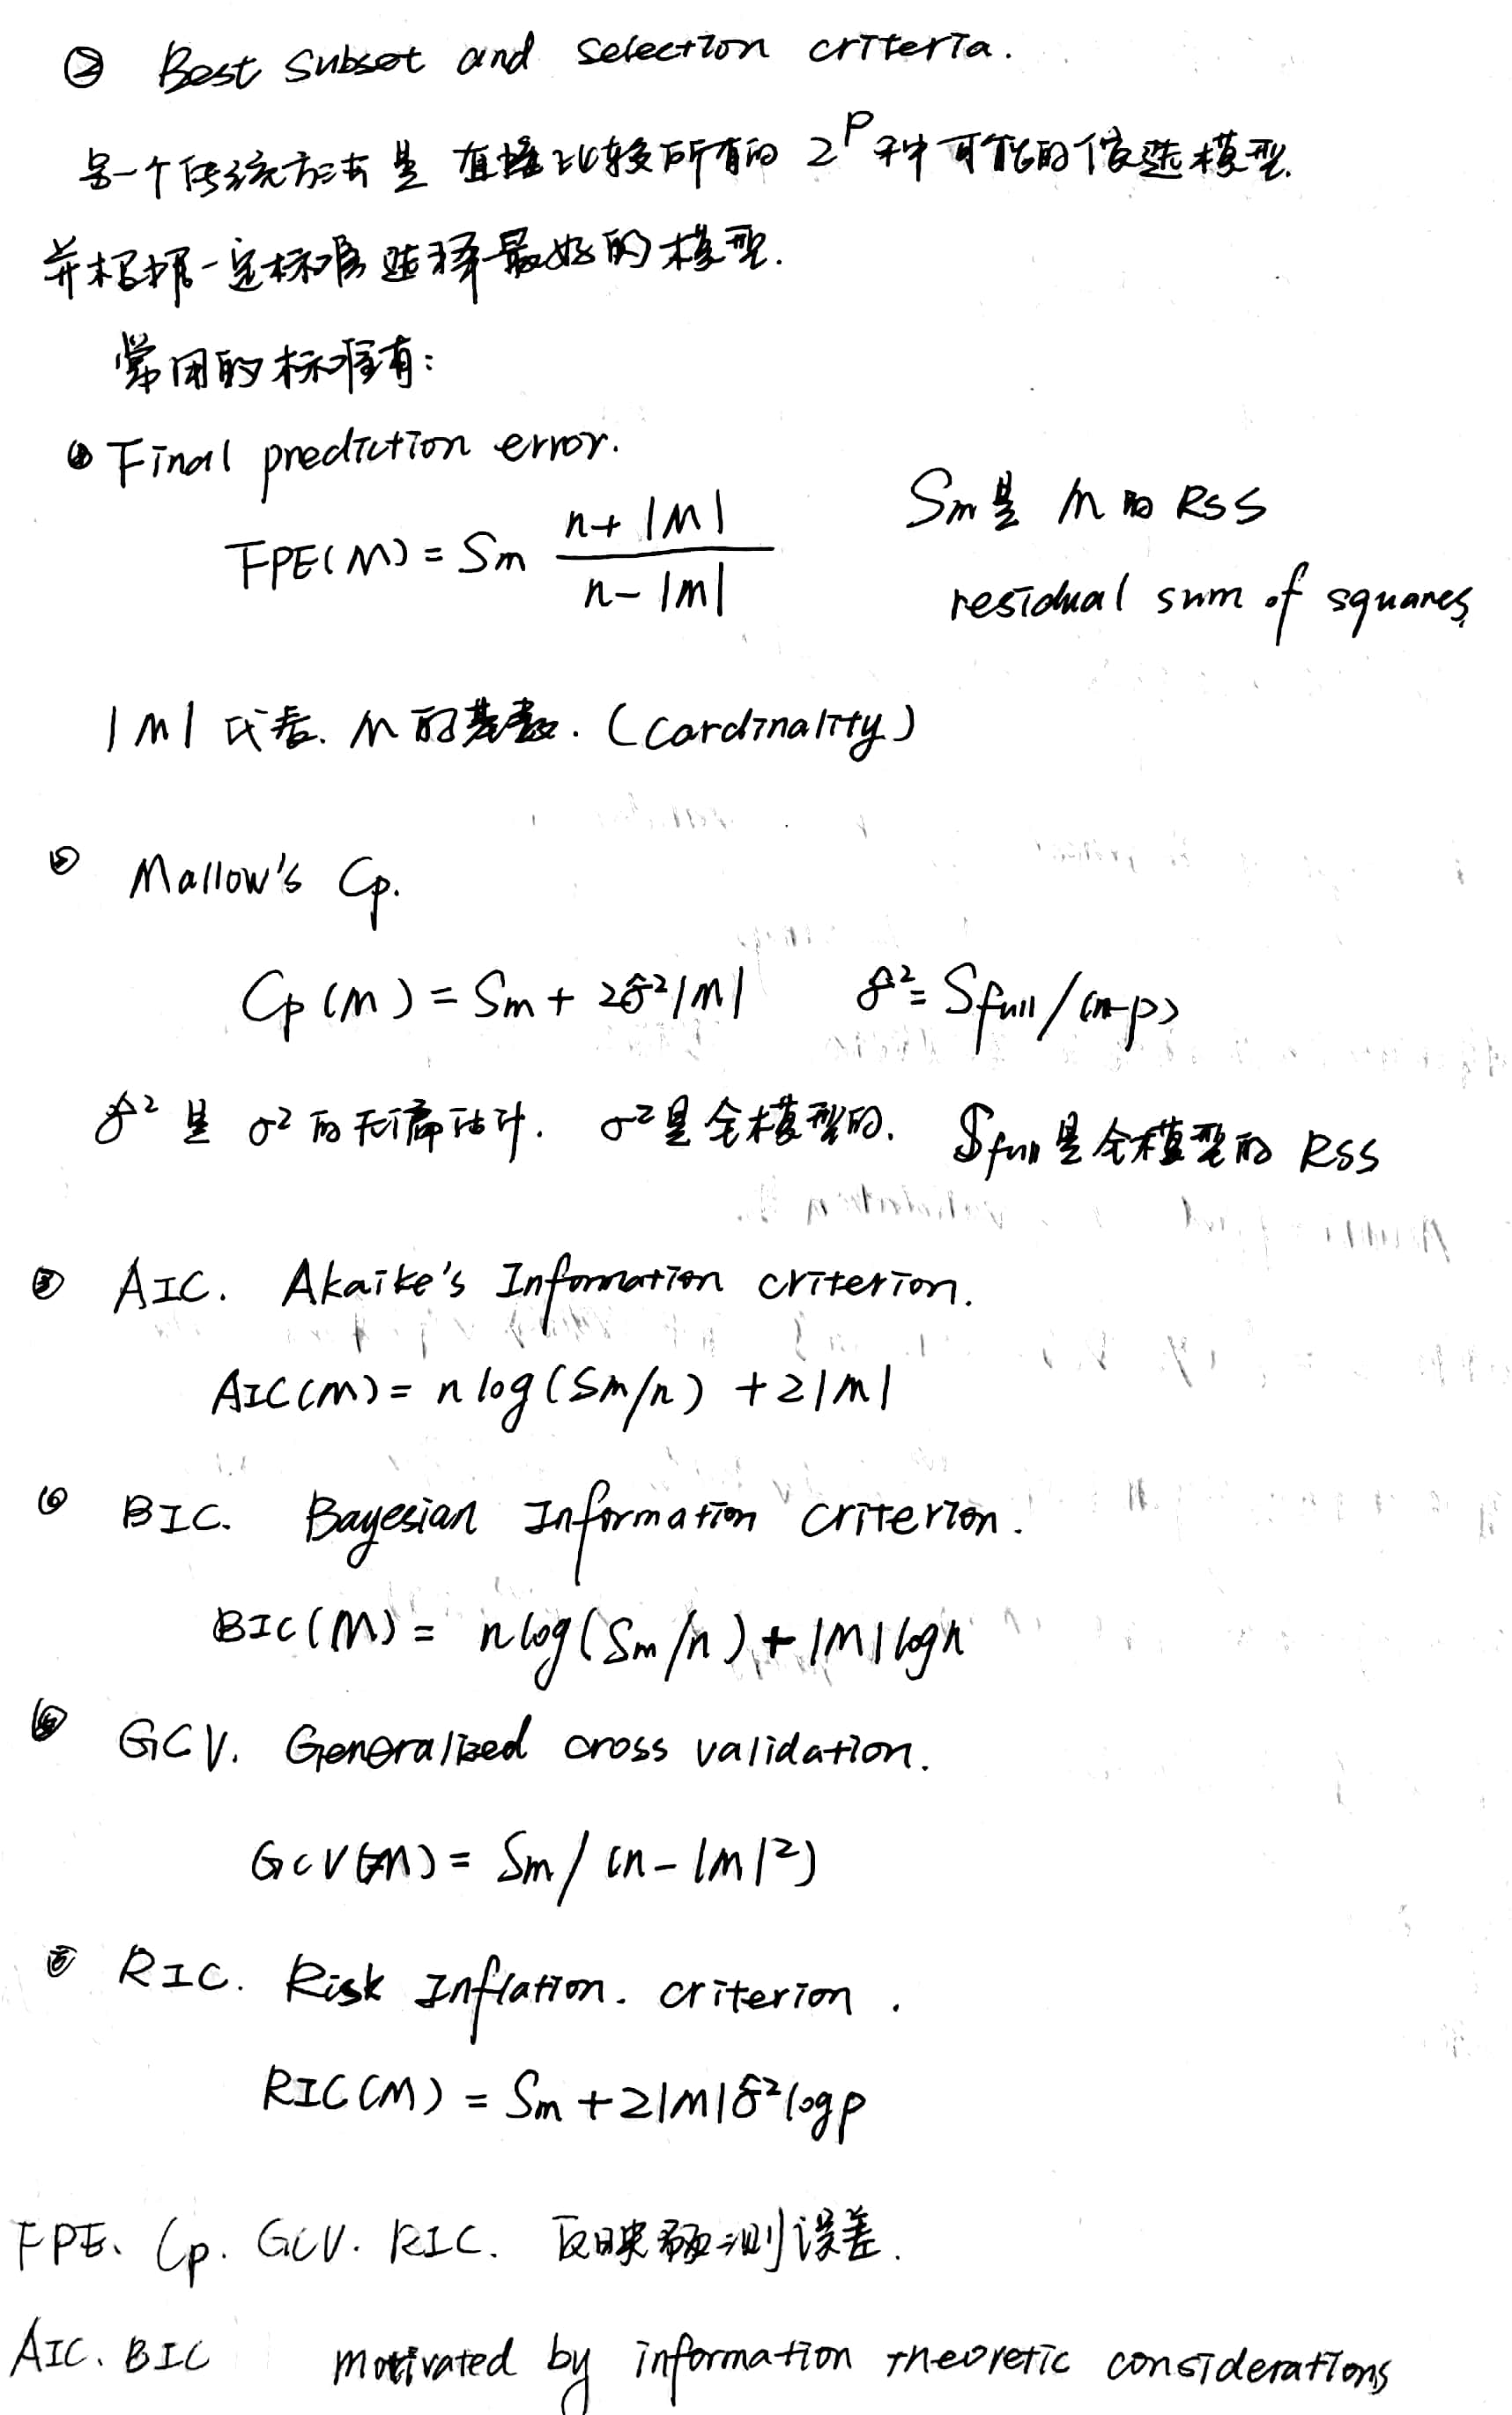 ② Best subset and selection criteria.
另一个传统方法是 直接比较所有的 2^p 种可能的候选模型.
并根据一定标准选择最好的模型.
常用的标准有:
① Final prediction error.
FPE(M) = Sm (n+|M|)/(n-|M|) Sm是 M的 RSS
residual sum of squares
|M| 代表. M的基数. (cardinality)
② Mallow's Cp.
Cp(M) = Sm + 2σ̂²|M| σ̂² = Sfull/(n-p)
σ̂² 是 σ² 的无偏估计. σ²是全模型的. Sfull是全模型的 RSS
③ AIC. Akaike's Information criterion.
AIC(M) = n log(Sm/n) + 2|M|
④ BIC. Bayesian Information criterion.
BIC(M) = n log(Sm/n) + |M| log n
⑤ GCV. Generalized cross validation.
GCV(M) = Sm/(n-|M|²)
⑥ RIC. Risk Inflation. criterion.
RIC(M) = Sm + 2|M|σ̂² log p
FPE、Cp. GCV. RIC. 反映预测误差.
AIC、BIC motivated by information theoretic considerations